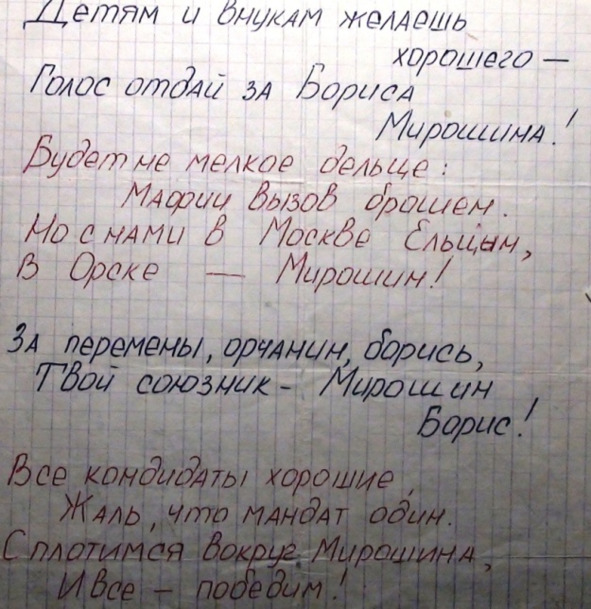 Детям и внукам желаешь
хорошего —
Голос отдай за Бориса
Мирошина!
Будет не мелкое дельце:
Мафии вызов бросаем.
Но с нами в Москве Ельцин,
В Орске — Мирошин!
За перемены, орчанин, борись,
Твой союзник - Мирошин
Борис!
Все кондидаты хорошие,
Жаль, что мандат один.
Сплотимся вокруг Мирошина,
И все - победим!